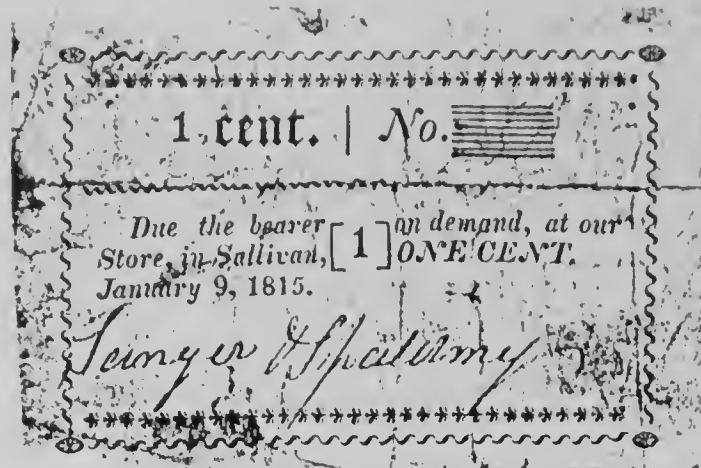 1 cent. | No.
Due the bearer [1] on demand, at our
Store, in Sallivan, ONE CENT.
January 9, 1815.